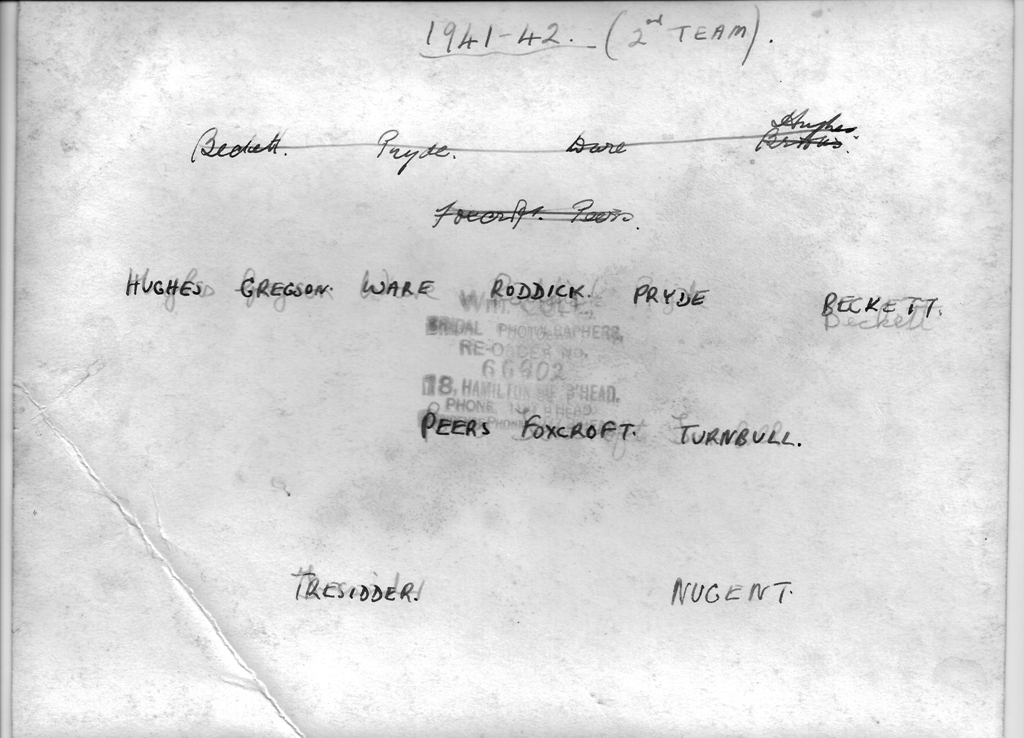 1941-42. (2nd TEAM).
Beckett. Pryde. Ware Hughes
Foxcroft. Peers.
HUGHES GREGSON. WARE RODDICK. PRYDE BECKETT.
Beckett
PHOTOGRAPHERS,
RE-ORDER NO.
66902
18, HAMILTON B'HEAD.
PHONE B'HEAD
PEERS FOXCROFT. TURNBULL.
TRESIDDER. NUGENT.